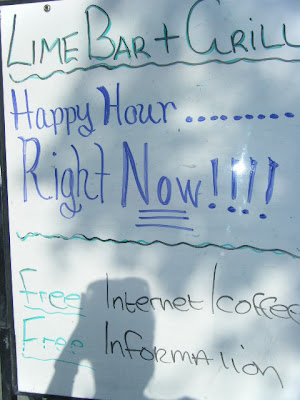 Lime Bar + Grill
Happy Hour ..........
Right Now!!!!
Free Internet/coffee
Free Information